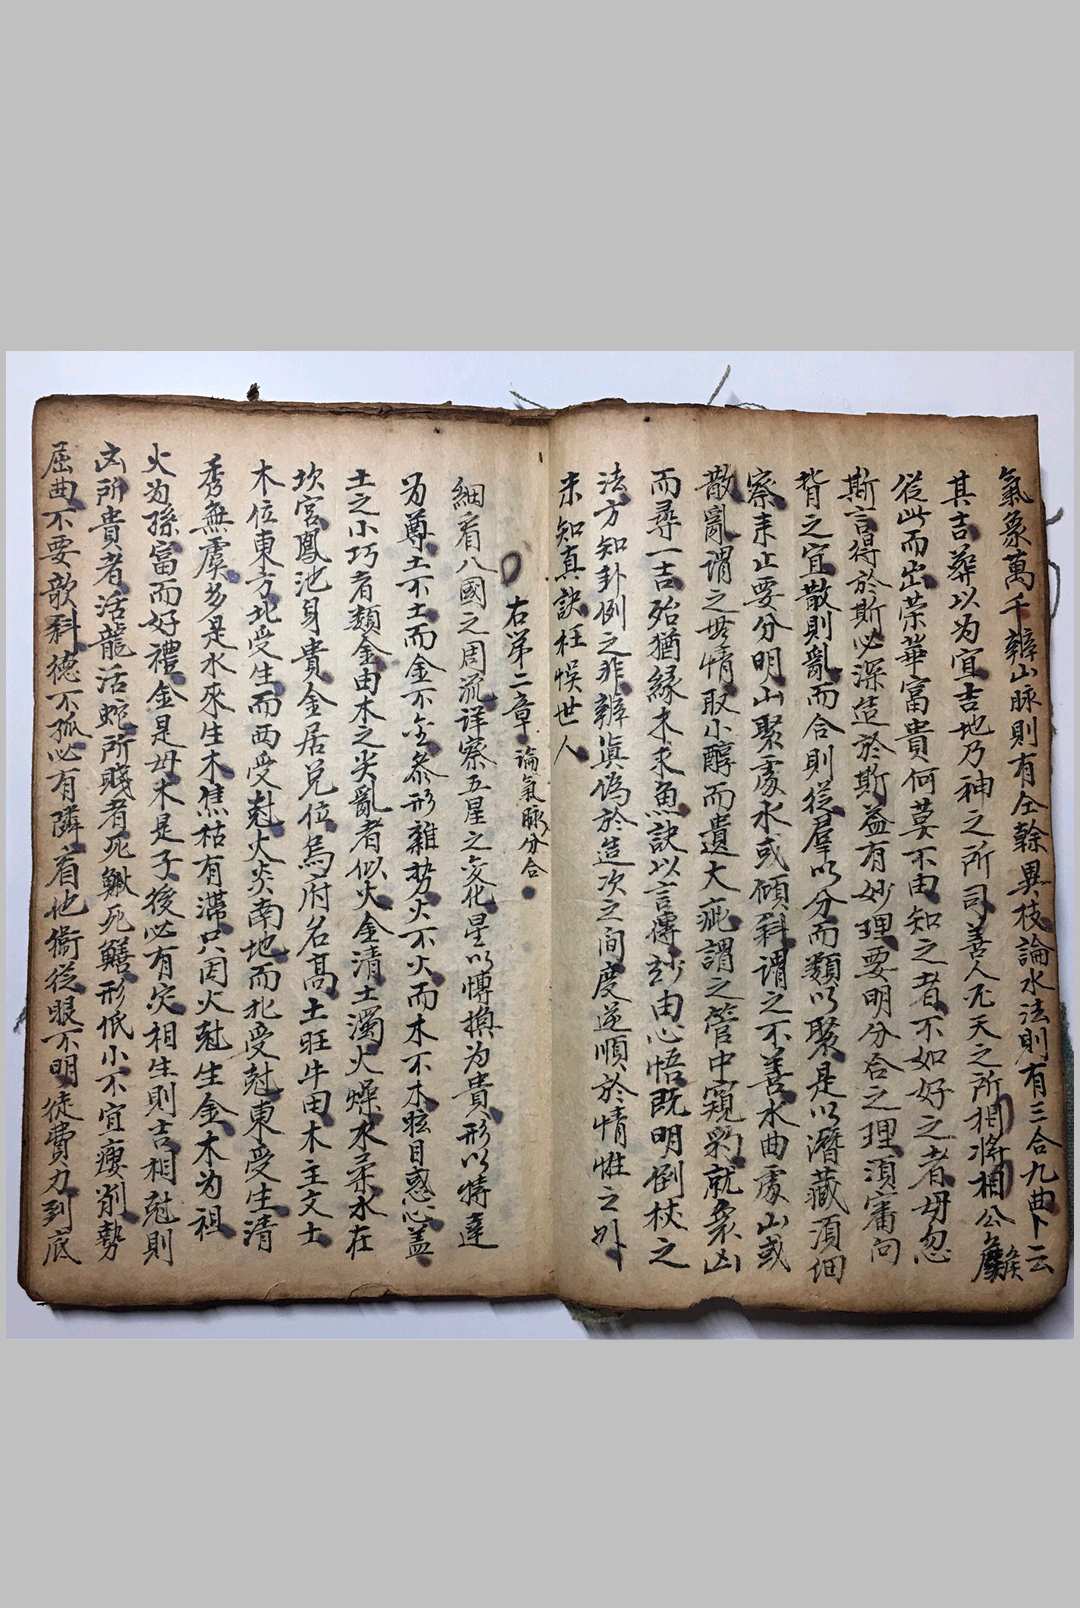 氣象萬千辨山脉則有仝榦異枝論水法則有三合九曲卜云
其吉葬以为宜吉地乃神之所司善人乃天之所相將相公侯
從此而出荣華富貴何莫不由知之者不如好之者毋忽
斯言得於斯必深造於斯益有妙理要明分合之理須審向
背之宜散則亂而合則從羣以分而類以聚是以潛藏須細
察来止要分明山聚處水或傾斜謂之不善水曲處山或
散亂謂之世情取小醇而遺大疵謂之管中窺豹就衆凶
而尋一吉殆猶緣木求魚訣以言傳玅由心悟既明倒杖之
法方知卦例之非辨真偽於造次之間度逆順於情性之外
未知真訣枉悞世人
右苐二章論氣脉分合
細看八國之周流详察五星之变化星以博換为貴形以特達
为尊土不土而金不金叅形雜势火不火而木不木眩目惑心盖
土之小巧者類金由木之尖亂者似火金清土濁火燥水柔水在
坎宮鳳池身貴金居兑位烏府名高土旺牛田木主文士
木位東方北受生而西受尅火炎南地而北受尅東受生清
秀無虞多是水來生木焦枯有滯只因火尅生金木为祖
火为孫富而好禮金是母木是子後必有灾相生則吉相尅則
凶所貴者活龍活蛇所賤者死鰍死鱔形低小不宜瘦削勢
屈曲不要欹斜德不孤必有隣看他衞從眼不明徒費力到底